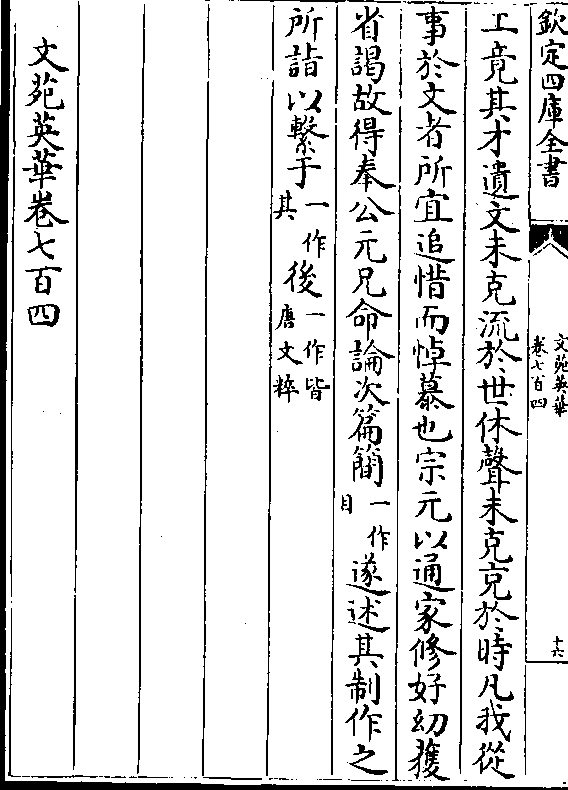 欽定四庫全書
文苑英華
卷七百四
十六
工竟其才遺文未克流於世休聲未克充於時凡我從
事於文者所宜追惜而悼慕也宗元以通家修好幼獲
省謁故得奉公元兄命論次篇簡一作目遂述其制作之
所詣以繫于一作其後一作皆唐文粹
文苑英華卷七百四